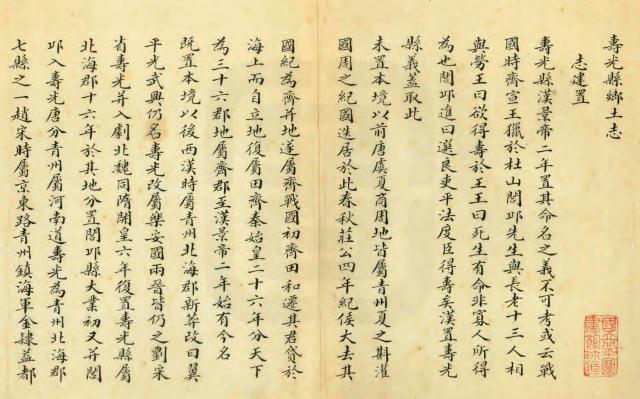 壽光縣鄉土志
志建置
壽光縣漢景帝二年置其命名之義不可考或云戰
國時齊宣王獵於杜山閭邱先生與長老十三人相
與勞王曰欲得壽於王王曰死生有命非寡人所得
為也閭邱進曰選良吏平法度臣得壽矣漢置壽光
縣義蓋取此
未置本境以前唐虞夏商周地皆屬青州夏之斟灌
國周之紀國迭居於此春秋莊公四年紀侯大去其
國紀為齊并地遂屬齊戰國初齊田和遷其君貸於
海上而自立地復屬田齊秦始皇二十六年分天下
為三十六郡地屬齊郡至漢景帝二年始有今名
既置本境以後兩漢時屬青州北海郡新莽改曰翼
平光武興仍名壽光改屬樂安國兩晉皆仍之劉宋
省壽光并入劇北魏同隋開皇六年復置壽光縣屬
北海郡十六年於其地分置閭邱縣大業初又并閭
邱入壽光唐分青州屬河南道壽光為青州北海郡
七縣之一趙宋時屬京東路青州鎮海軍金隸益都